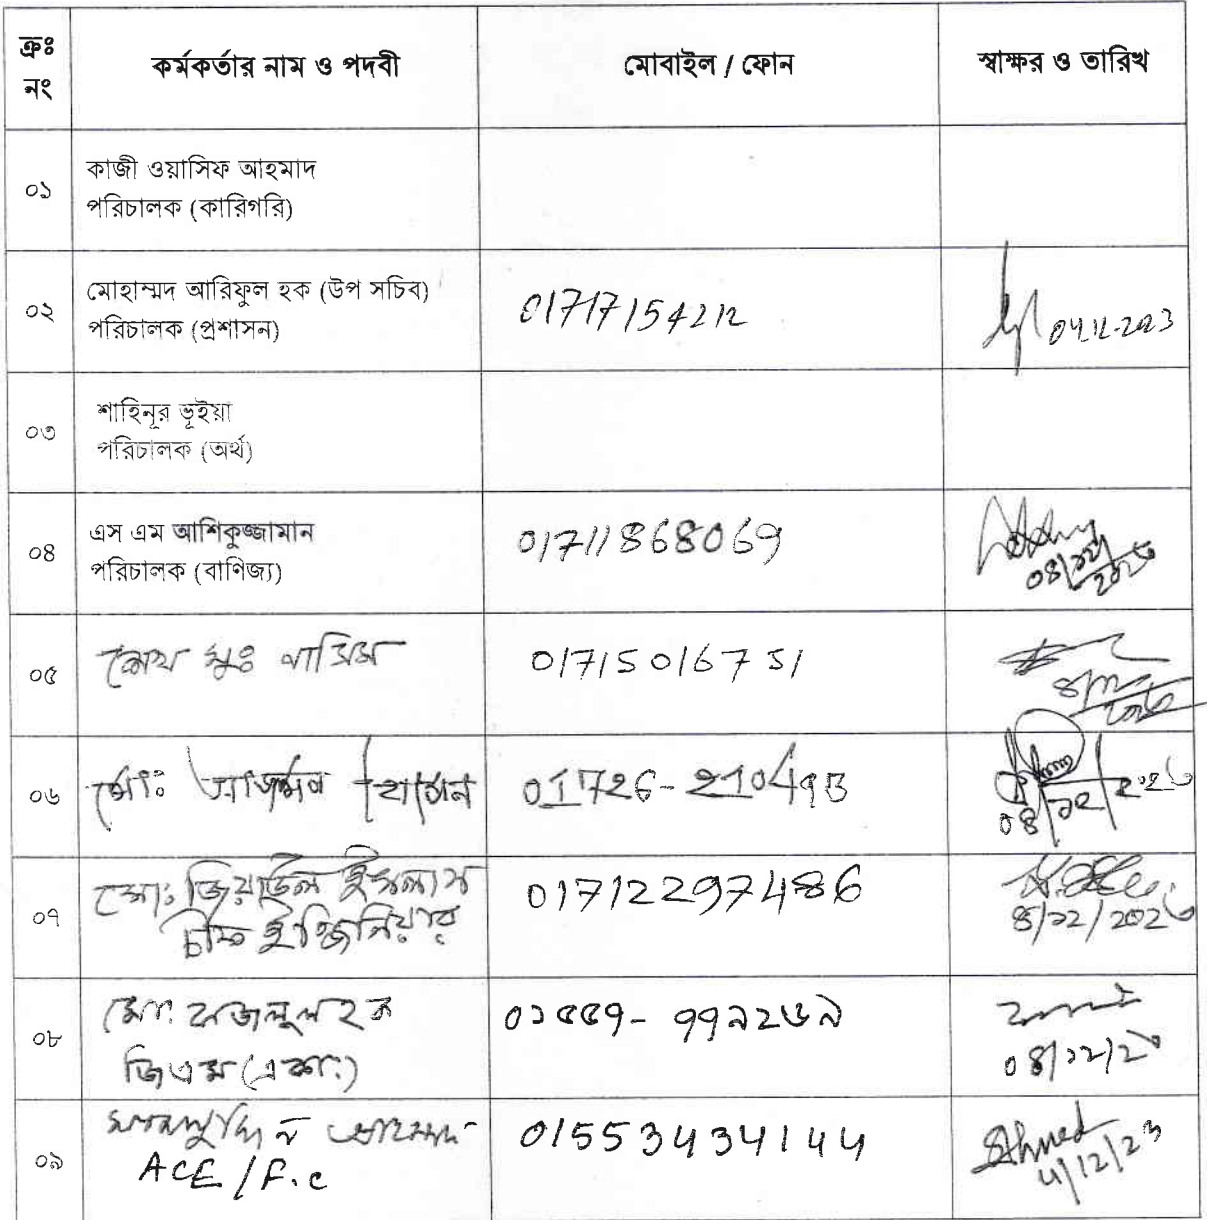 ক্রঃ
নং
কর্মকর্তার নাম ও পদবী
মোবাইল / ফোন
স্বাক্ষর ও তারিখ
০১
কাজী ওয়াসিফ আহমাদ
পরিচালক (কারিগরি)
০২
মোহাম্মদ আরিফুল হক (উপ সচিব)
পরিচালক (প্রশাসন)
01717154212
04.12.2023
০৩
শাহিনূর ভূইয়া
পরিচালক (অর্থ)
০৪
এস এম আশিকুজ্জামান
পরিচালক (বাণিজ্য)
01711868069
০৪/১২/
০৫
শেখ মুঃ নাসিম
01715016751
০৬
মোঃ হোসেন
০৪/১২/২০২৩
০৭
মোঃ জিয়াউল ইসলাম
চীফ ইঞ্জিনিয়ার
01712297486
৪/১২/২০২৩
০৮
মোঃ ফজলুল হক
জিএম (একাঃ)
০১৫৫৭- ৭৭৯২৬৯
০৪/১২/২৩
০৯
আহমদ
ACE / F.C
01553434144
Ahmed
4/12/23